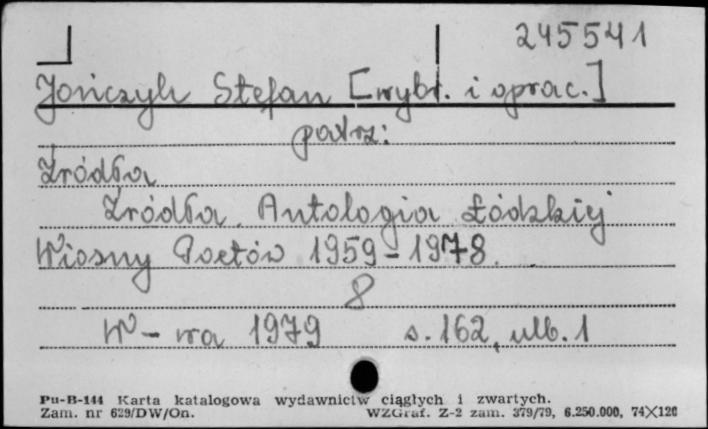 245541
Jończyk Stefan [wybr. i oprac.]
patrz:
Źródła
Źródła. Antologia Łódzkiej
Wiosny Poetów 1959-1978.
8
W-wa 1979 s. 162, nlb. 1
Pu-B-144 Karta katalogowa wydawnictw ciągłych i zwartych.
Zam. nr 629/DW/On. WZGraf. Z-2 zam. 379/79, 6.250.000, 74X120